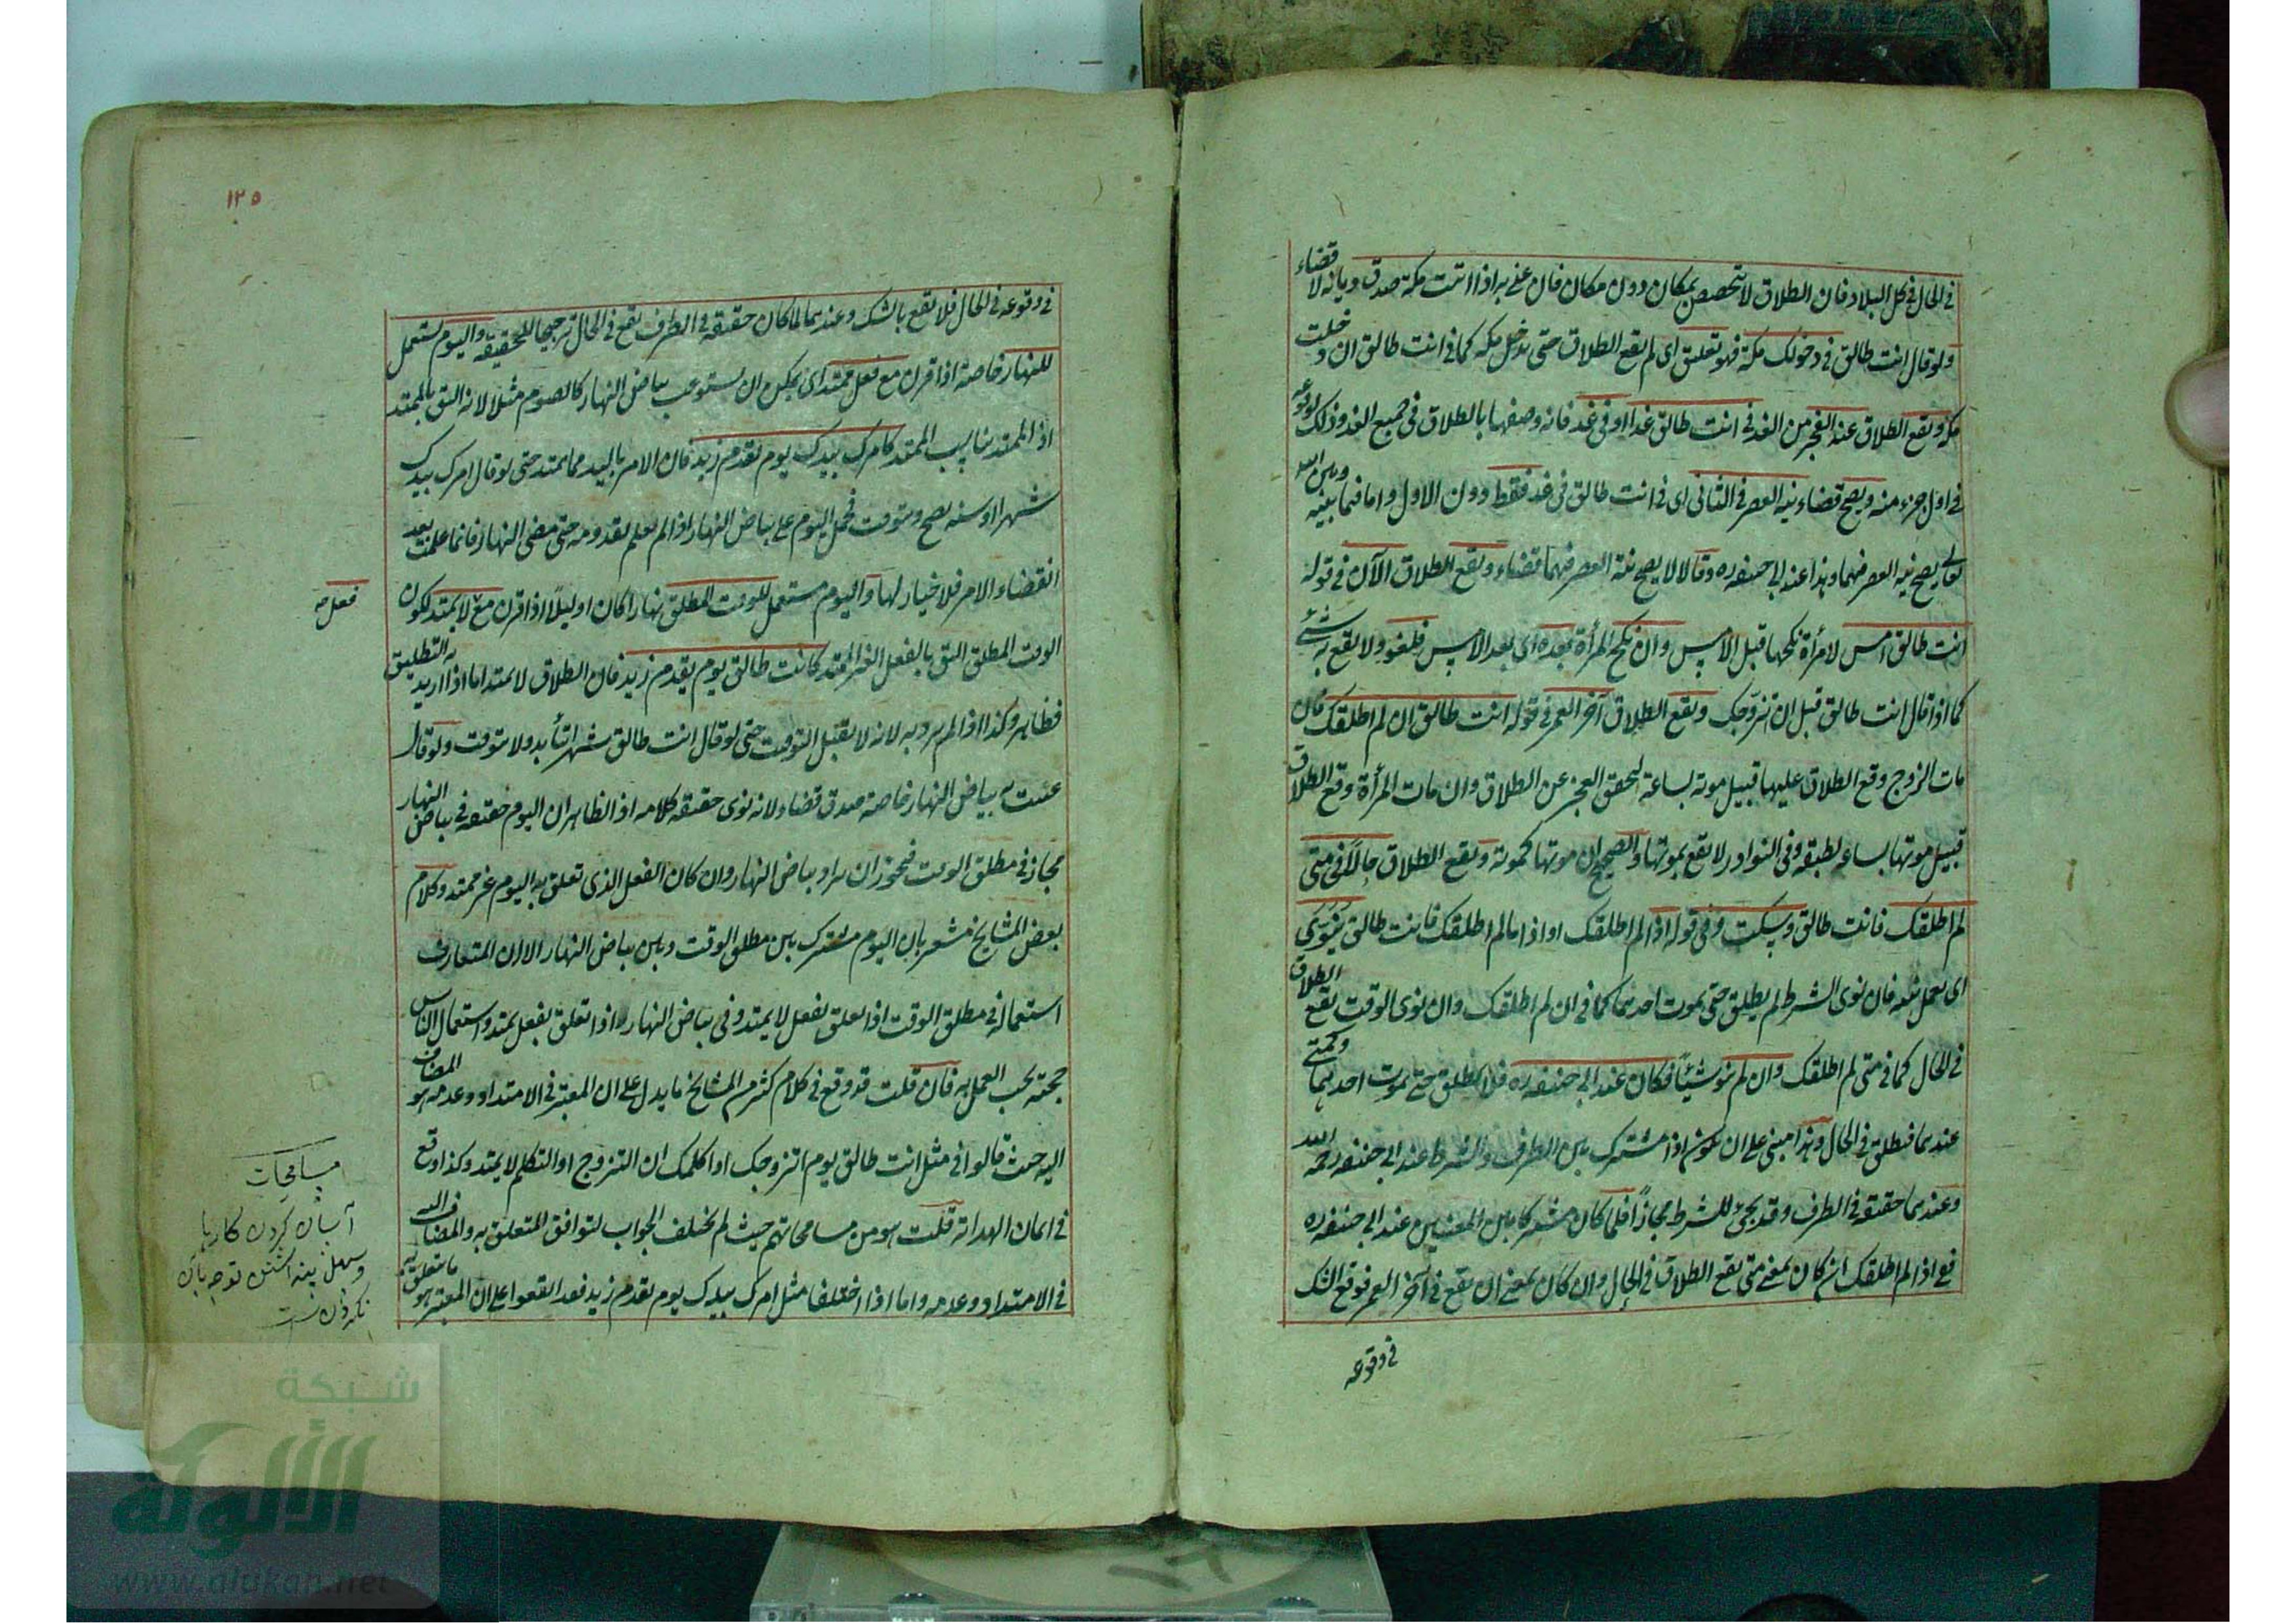 في الحال في كل البلاد فان الطلاق لا يتخصص بمكان دون مكان فان عنى به اذا اتيت مكة صدق ديانة لا قضاء
ولو قال انت طالق في دخولك مكة فهو تعليق اى لم يقع الطلاق حتى تدخل مكة كما في انت طالق ان دخلت
مكة ويقع الطلاق عند الفجر من الغد في انت طالق غدا او في غد فانه وصفها بالطلاق في جميع الغد وذلك لوقوعه
في اول جزء منه ويصح قضاء نية العصر في الثانى اى في انت طالق في غد فقط دون الاول واما فيما بينه وبين الله
تعالى يصح نية العصر فيهما وهذا عند ابى حنيفة ره وقالا لا يصح نية العصر فيهما قضاء ويقع الطلاق الآن في قوله
انت طالق امس لامرأة نكحها قبل الامس وان نكح المرأة بعده اى بعد الامس فلغو ولا يقع به شئ
كما اذا قال انت طالق قبل ان اتزوجك ويقع الطلاق آخر العمر في قوله انت طالق ان لم اطلقك فان
مات الزوج وقع الطلاق عليها قبيل موته بساعة لتحقق العجز عن الطلاق وان ماتت المرأة وقع الطلاق
قبيل موتها بساعة لطيفة وفى النوادر لا يقع بموتها والصحيح ان موتها كموته ويقع الطلاق حالا في متى
لم اطلقك فانت طالق وسكت وفى قوله اذا لم اطلقك او اذا ما لم اطلقك فانت طالق ينوى
اى يعمل بنيته فان نوى الشرط لم يطلق حتى يموت احدهما كما في ان لم اطلقك وان نوى الوقت يقع الطلاق
في الحال كما في متى لم اطلقك وان لم ينو شيئا فكان عند ابى حنيفة ره فلا يطلق حتى يموت احدهما وكمتى
عندهما فيطلق في الحال وهذا مبنى على ان اذا مشترك بين الظرف والشرط عند ابى حنيفة رحمه الله
وعندهما حقيقة في الظرف وقد يجئ للشرط مجازا فلما كان مشتركا بين المعنيين عند ابى حنيفة ره
ففى اذا لم اطلقك ان كان بمعنى متى يقع الطلاق في الحال وان كان بمعنى ان يقع في آخر العمر فوقع الشك
في وقوعه
١٢٥
في وقوعه في الحال فلا يقع بالشك وعندهما لما كان حقيقة في الظرف يقع في الحال ترجيحا للحقيقة واليوم يستعمل
للنهار خاصة اذا قرن مع فعل ممتد اى يمكن ان يستوعب بياض النهار كالصوم مثلا لانه اليق بالممتد
اذ الممتد يناسب الممتد كامرك بيدك يوم يقدم زيد فان الامر باليد مما يمتد حتى لو قال امرك بيدك
شهرا او سنة يصح ويتوقت فحمل اليوم على بياض النهار اذا لم يعلم بقدومه حتى مضى النهار فانما علمت بعد
انقضاء الامر فلا خيار لها واليوم يستعمل للوقت المطلق نهارا كان او ليلا اذا قرن مع لا يمتد لكون
فعل صح
الوقت المطلق اليق بالفعل الغير الممتد كانت طالق يوم يقدم زيد فان الطلاق لا يمتد اما اذا اريد به التطليق
فظاهر وكذا اذا لم يرد به لانه لا يقبل التوقيت حتى لو قال انت طالق شهرا يتأبد ولا يتوقت ولو قال
عنيت به بياض النهار خاصة صدق قضاء لانه نوى حقيقة كلامه اذ الظاهر ان اليوم حقيقة في بياض النهار
مجاز في مطلق الوقت فيجوز ان يراد بياض النهار وان كان الفعل الذى تعلق به اليوم غير ممتد وكلام
بعض المشايخ مشعر بان اليوم مشترك بين مطلق الوقت وبين بياض النهار الا ان المتعارف
استعماله في مطلق الوقت اذا تعلق بفعل لا يمتد وفى بياض النهار اذا تعلق بفعل يمتد واستعمال الناس
حجة يجب العمل به فان قلت قد وقع في كلام كثير من المشايخ ما يدل على ان المعتبر في الامتداد وعدمه هو المضاف
اليه حيث قالوا في مثل انت طالق يوم اتزوجك او اكلمك ان التزوج او التكلم لا يمتد وكذا وقع
في ايمان الهداية قلت هو من مسامحاتهم حيث لم يختلف الجواب لتوافق المتعلق به والمضاف اليه
في الامتداد وعدمه واما اذا اختلفا مثل امرك بيدك يوم يقدم زيد فقد اتفقوا على ان المعتبر هو ما يتعلق به
مسامحات
آسان كردن كارها
وسهل پنداشتن توجه بآن
نكردن است
شبكة
الألوكة
www.alukah.net